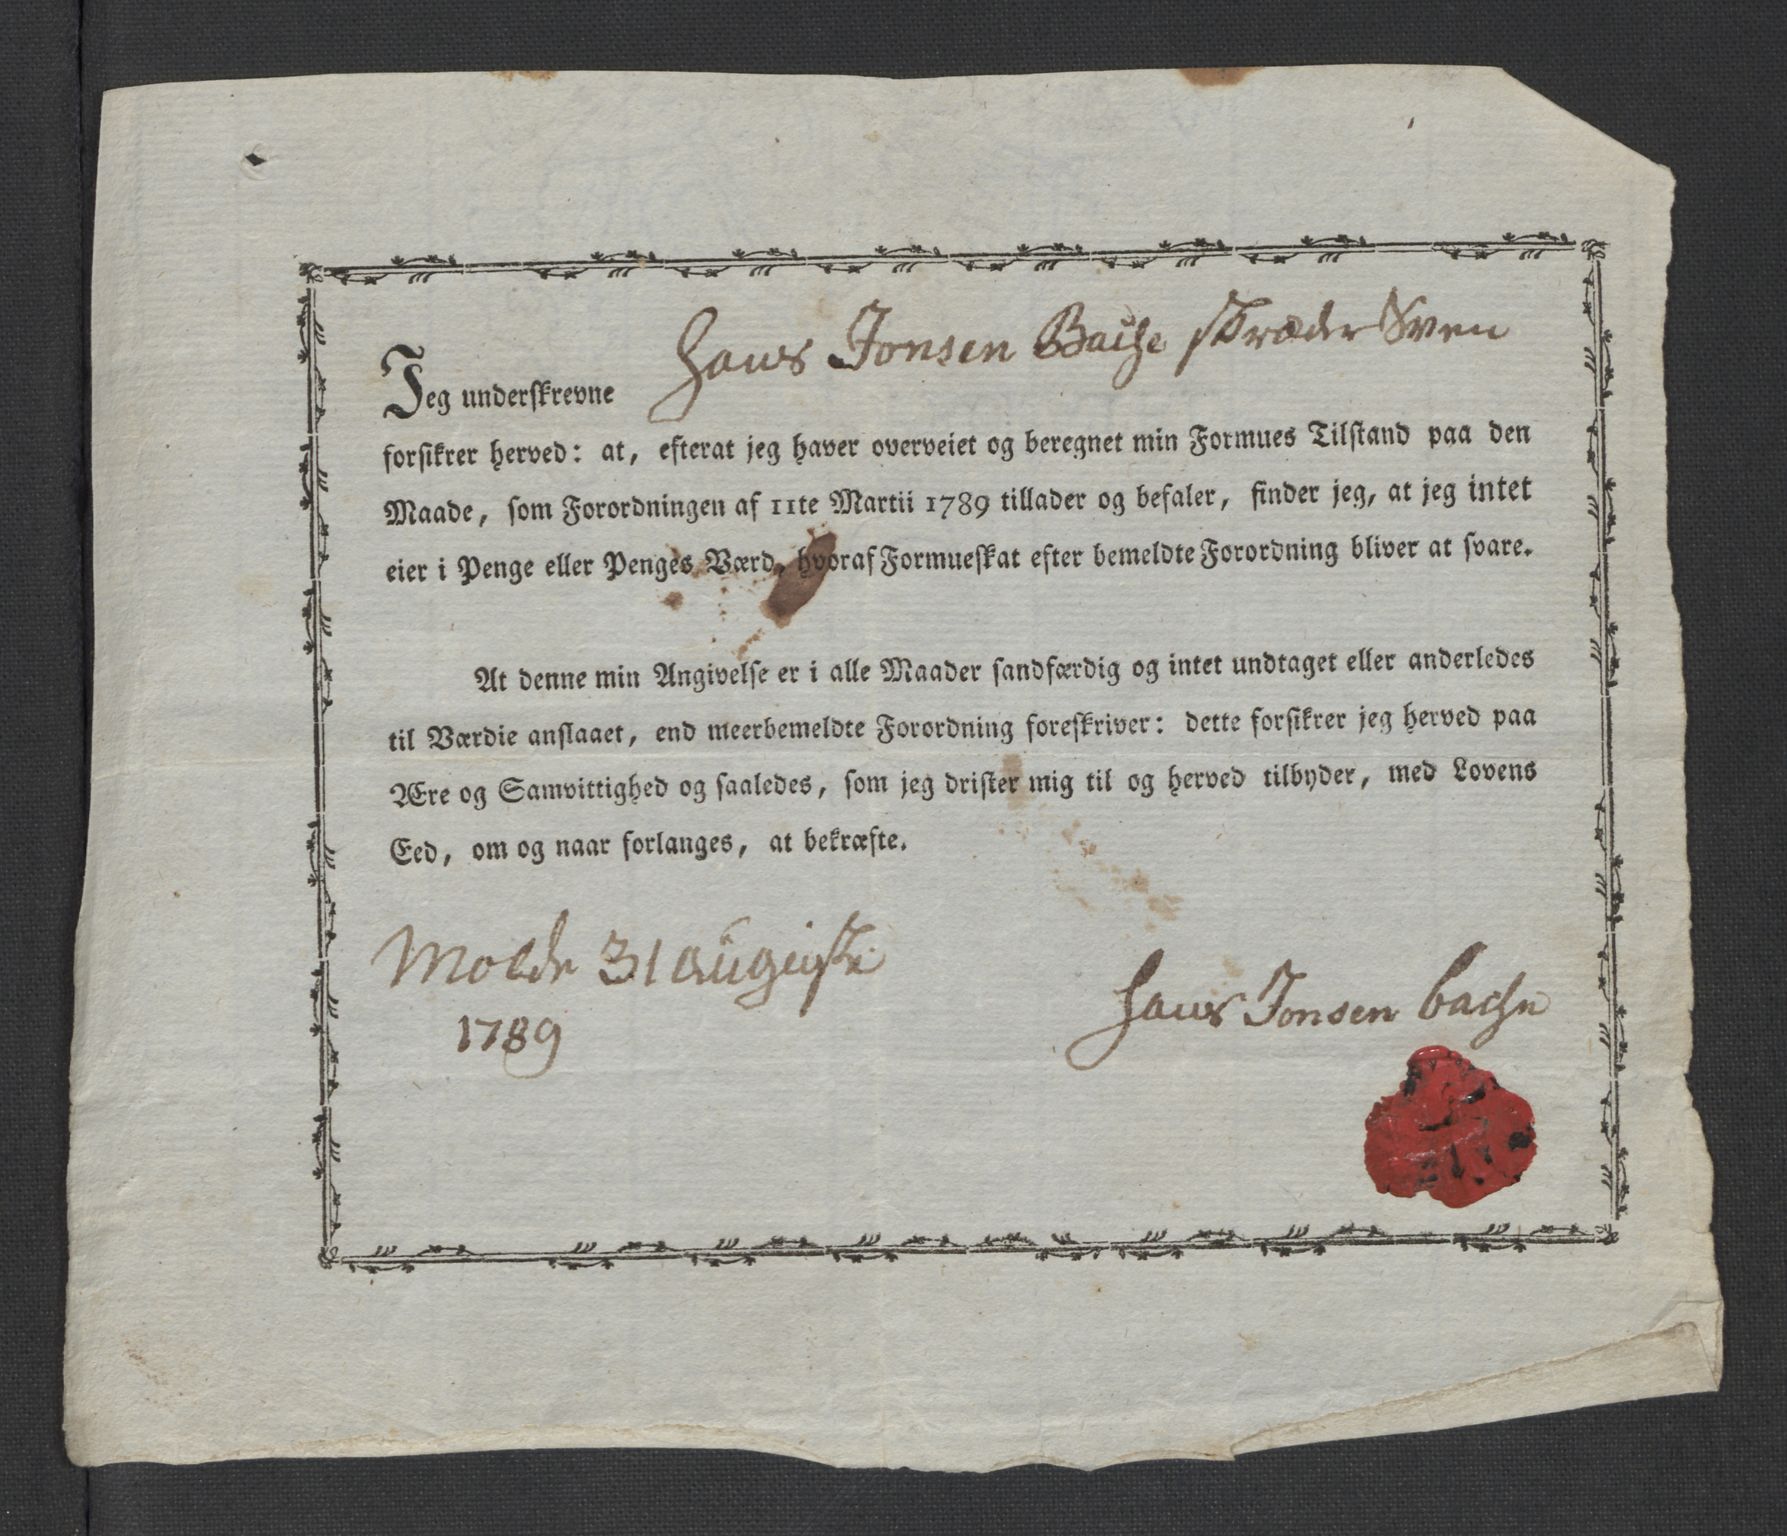 Hans Jonsen Bache skræder Sven
Jeg underskrevne
forsikrer herved: at, efterat jeg haver overveiet og beregnet min Formues Tilstand paa den
Maade, som Forordningen af 11te Martii 1789 tillader og befaler, finder jeg, at jeg intet
eier i Penge eller Penges Værd, hvoraf Formueskat efter bemeldte Forordning bliver at svare.
At denne min Angivelse er i alle Maader sandfærdig og intet undtaget eller anderledes
til Værdie anslaaet, end meerbemeldte Forordning foreskriver: dette forsikrer jeg herved paa
Ære og Samvittighed og saaledes, som jeg drister mig til og herved tilbyder, med Lovens
Eed, om og naar forlanges, at bekræfte.
Molde 31 auguste
1789
Hans Jonsen bache